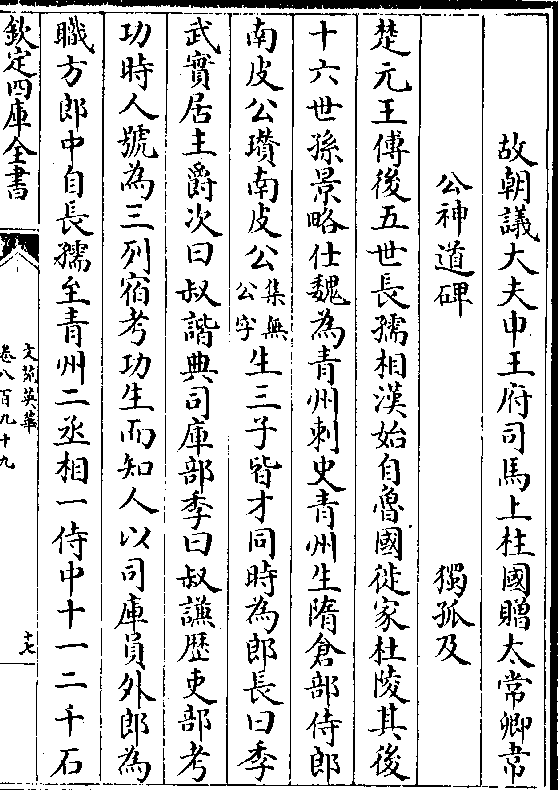 故朝議大夫申王府司馬上柱國贈太常卿韋
公神道碑　獨孤及
楚元王傅後五世長孺相漢始自魯國徙家杜陵其後
十六世孫景略仕魏為青州刺史青州生隋倉部侍郎
南皮公瓚南皮公集無公字生三子皆才同時為郎長曰季
武實居主爵次曰叔諧典司庫部季曰叔謙歷吏部考
功時人號為三列宿考功生而知人以司庫員外郎為
職方郎中自長孺至青州二丞相一侍中十一二千石
欽定四庫全書
文苑英華
卷八百九十九
十七